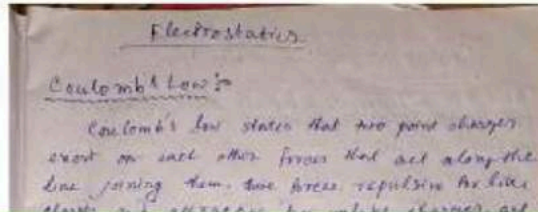 Electrostatics
Coulomb's Low :-
Coulomb's low states that two point charges
exert on each other forces that act along the
line joining them. two forces. repulsive for like